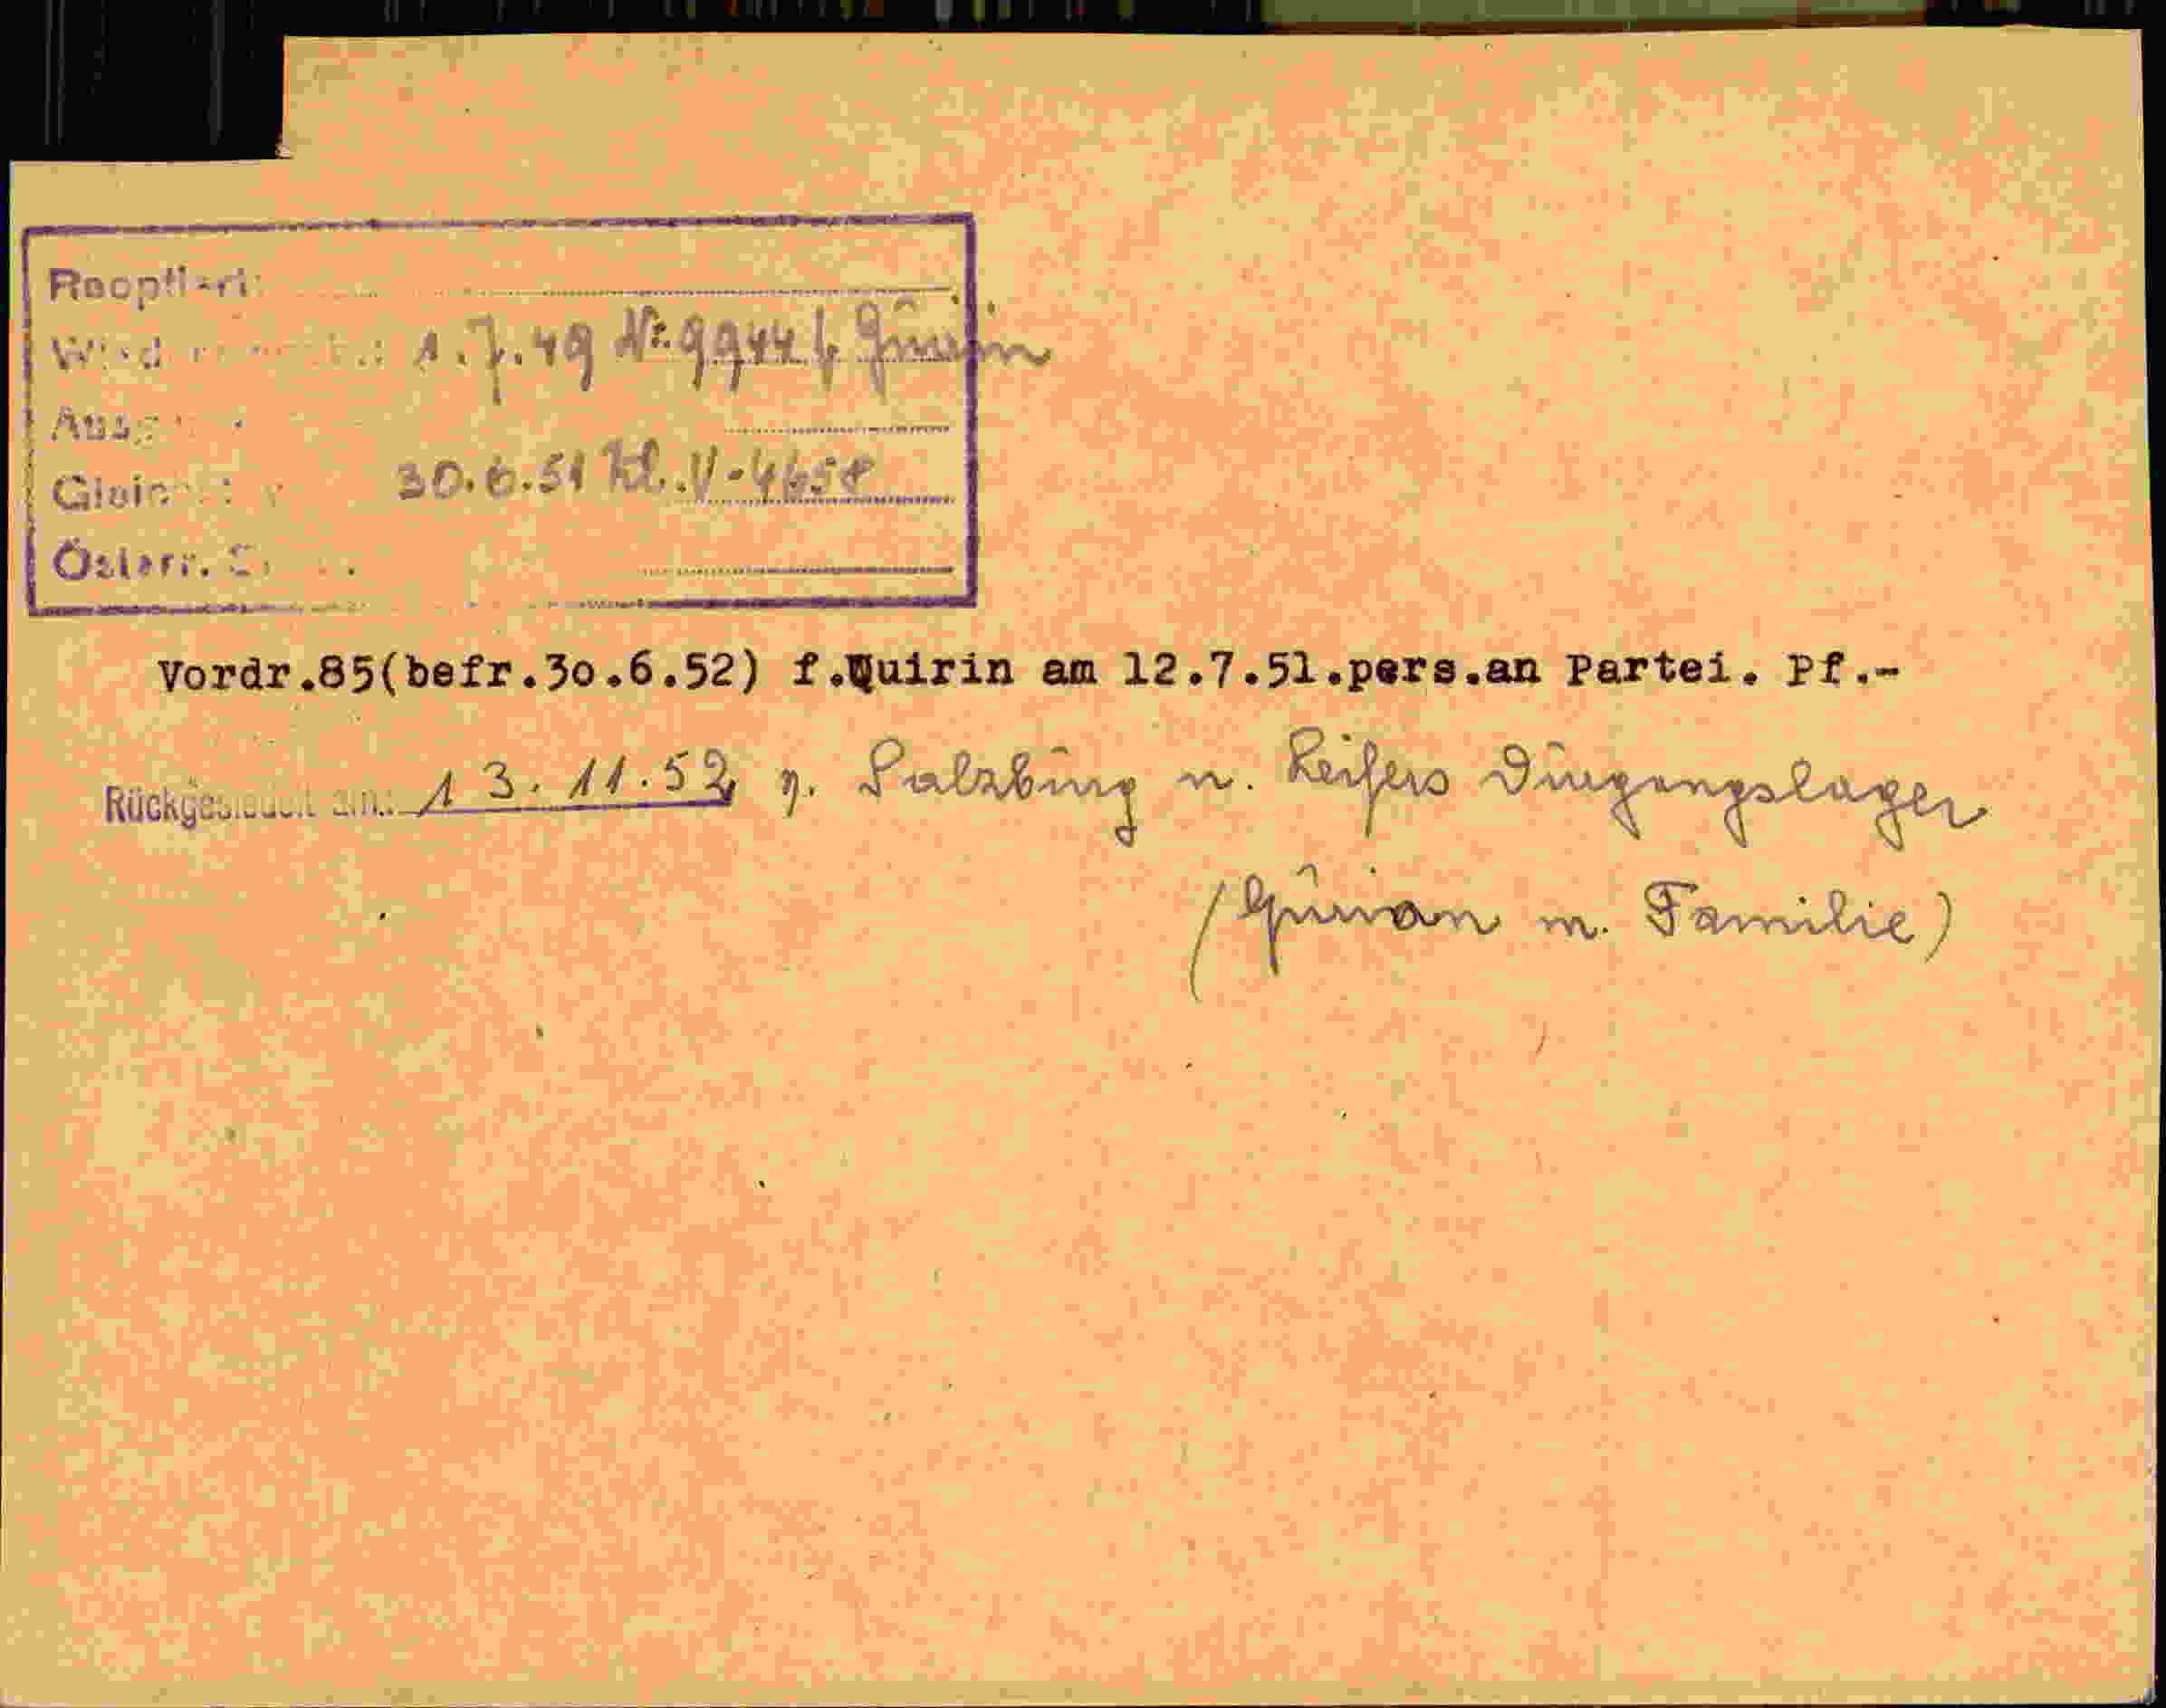 Reoptiert:
1.7.49 Nr. 9944 f. Quirin
30.6.51 Kl. V-4658
Österr.
Vordr.85(befr.3o.6.52) f.Quirin am 12.7.51.pers.an Partei. Pf.-
Rückgesiedelt am: 13.11.52 v. Salzburg n. Leifers Durgangslager
(Quirin m. Familie)